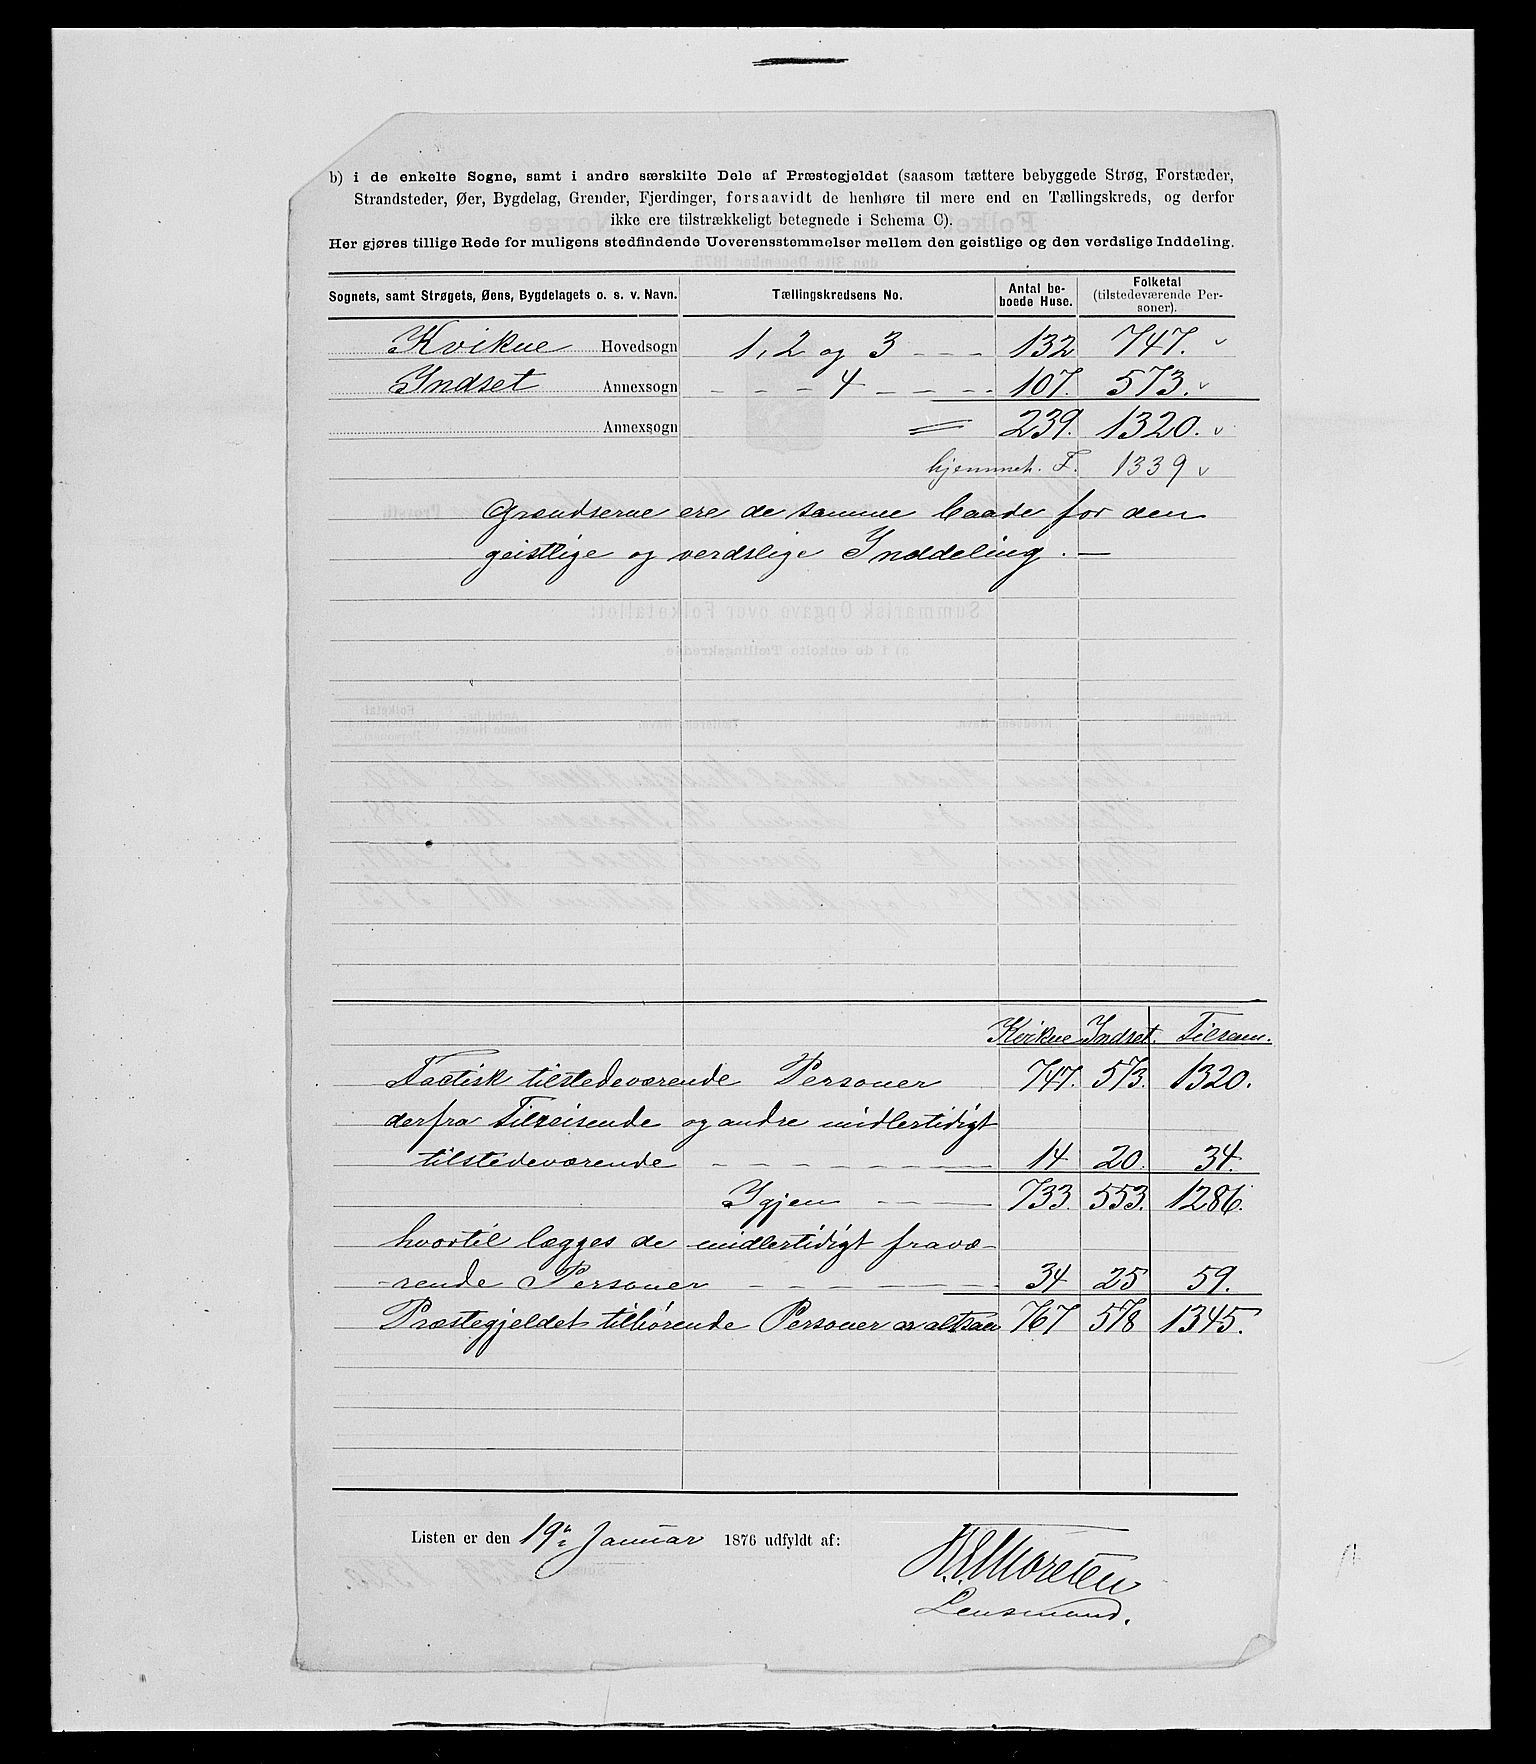 b) i de enkelte Sogne, samt i andre særskilte Dele af Præstegjeldet (saasom tættere bebyggede Strøg, Forstæder,
Strandsteder, Øer, Bygdelag, Grender, Fjerdinger, forsaavidt de henhøre til mere end en Tællingskreds, og derfor
ikke ere tilstrækkeligt betegnede i Schema C).
Her gjøres tillige Rede for muligens stedfindende Uoverensstemmelser mellem den geistlige og den verdslige Inddeling.
Sognets, samt Strøgets, Øens, Bygdelagets o. s. v. Navn. Tællingskredsens No. Antal be-boede Huse. Folketal (tilstedeværende Per-soner).
Kvikne Hovedsogn 1, 2 og 3 - - - 132 747.
Indset Annexsogn - - - 4 - - - 107. 573.
Annexsogn = 239. 1320.
hjemmeh. F. 1339
Grændserne ere de samme baade for den
geistlige og verdslige Inddeling. —
Kvikne Indset. Tilsam.
Factisk tilstedeværende Personer 747. 573. 1320.
derfra Tilreisende og andre midlertidigt
tilstedeværende - - - - - - 14 20. 34.
Igjen - - - 733. 553. 1286.
hvortil lægges de midlertidigt fravæ-
rende Personer - - - - - 34 25 59.
Præstegjeldet tilhørende Personer er altsaa 767 578 1345.
Listen er den 19de Januar 1876 udfyldt af:
Lensmand.